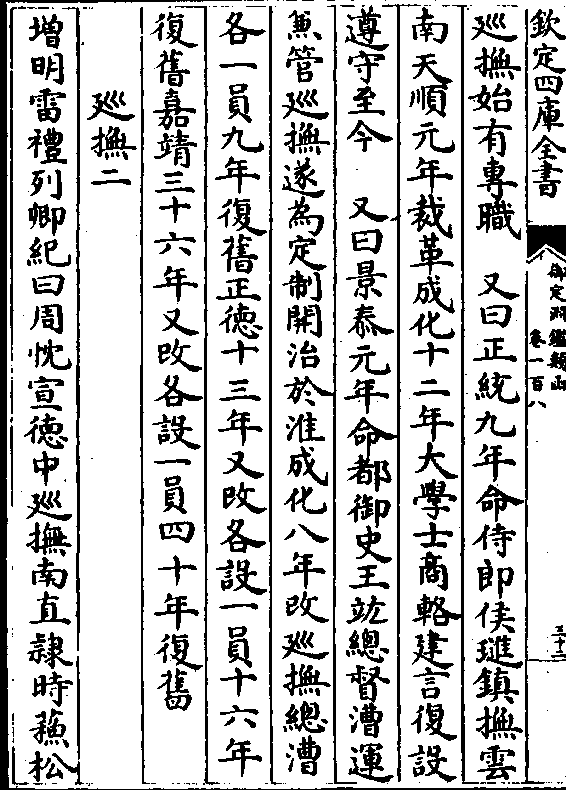 欽定四庫全書
御定淵鑑類函
卷一百八
三十二
廵撫始有專職 又曰正統九年命侍郎侯璡鎮撫雲
南天順元年裁革成化十二年大學士商輅建言復設
遵守至今 又曰景泰元年命都御史王竑總督漕運
兼管廵撫遂為定制開治於淮成化八年改廵撫總漕
各一員九年復舊正德十三年又改各設一員十六年
復舊嘉靖三十六年又改各設一員四十年復舊
廵撫二
増明雷禮列卿紀曰周忱宣德中廵撫南直隷時蘇松